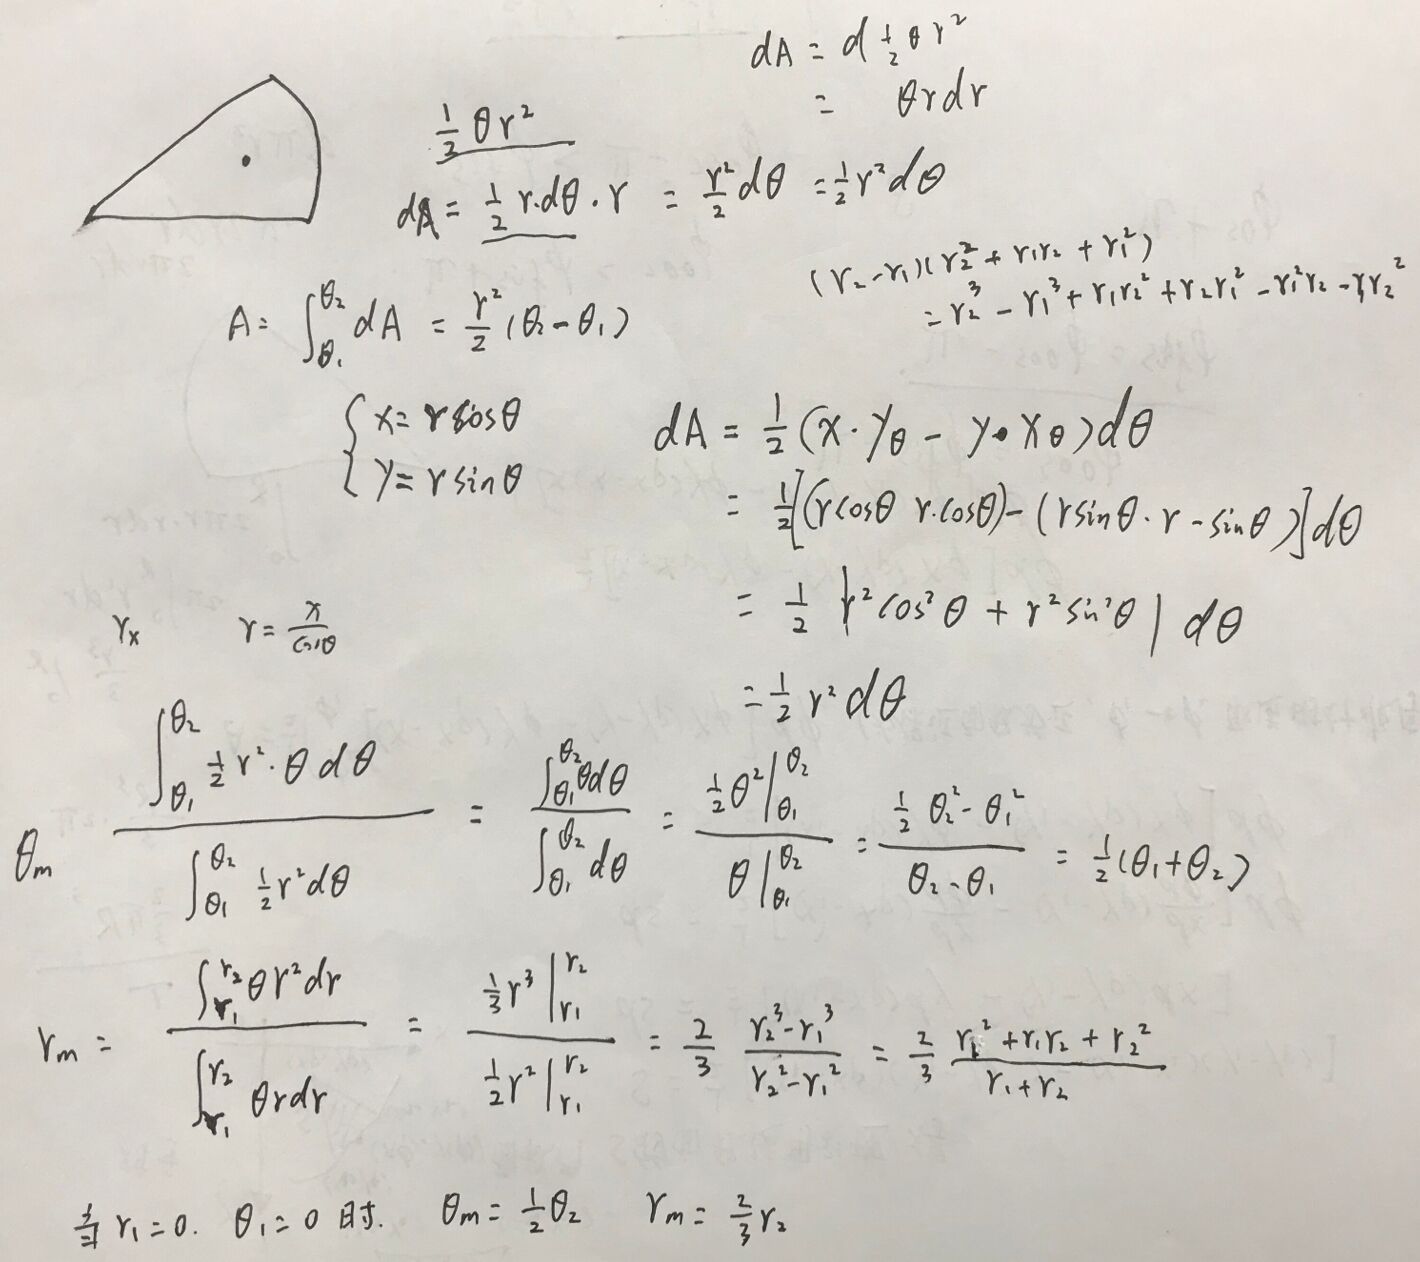 dA = d ½ θ r²
= θrdr
½ θr²
dA = ½ r·dθ·r = r²/2 dθ = ½r²dθ
(r₂-r₁)(r₂²+r₁r₂+r₁²)
= r₂³ - r₁³ + r₁r₂² + r₂r₁² - r₁²r₂ - r₁r₂²
A = ∫_θ₁^θ₂ dA = r²/2 (θ₂-θ₁)
{ x = r cosθ
y = r sinθ
dA = ½ (x·y_θ - y·x_θ)dθ
= ½[(rcosθ r·cosθ) - (rsinθ·r-sinθ)]dθ
= ½ |r²cos²θ + r²sin²θ| dθ
= ½ r²dθ
r_x r = x/cosθ
θm ∫_θ₁^θ₂ ½r²·θdθ / ∫_θ₁^θ₂ ½r²dθ = ∫_θ₁^θ₂ θdθ / ∫_θ₁^θ₂ dθ = ½θ²|_θ₁^θ₂ / θ|_θ₁^θ₂ = ½ θ₂²-θ₁² / θ₂-θ₁ = ½(θ₁+θ₂)
rm = ∫_r₁^r₂ θr²dr / ∫_r₁^r₂ θrdr = ⅓r³|_r₁^r₂ / ½r²|_r₁^r₂ = 2/3 r₂³-r₁³ / r₂²-r₁² = 2/3 r₁²+r₁r₂+r₂² / r₁+r₂
当 r₁=0. θ₁=0 时. θm = ½θ₂ rm = ⅔r₂